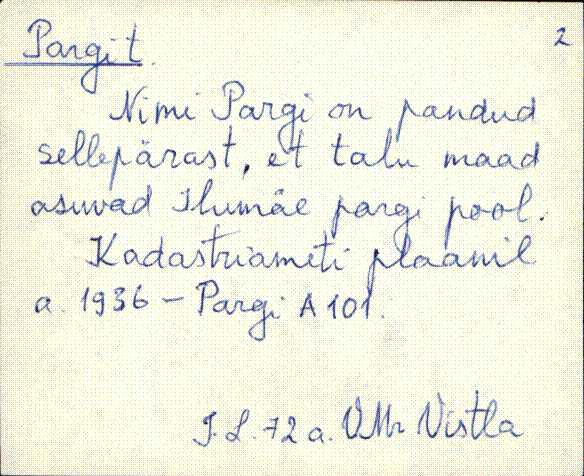 Pargi t.
2
Nimi Pargi on pandud
sellepärast, et talu maad
asuvad Ilumäe pargi pool.
Kadastriameti plaanil
a. 1936 – Pargi A 101.
J. L. 72 a. VMr Vistla